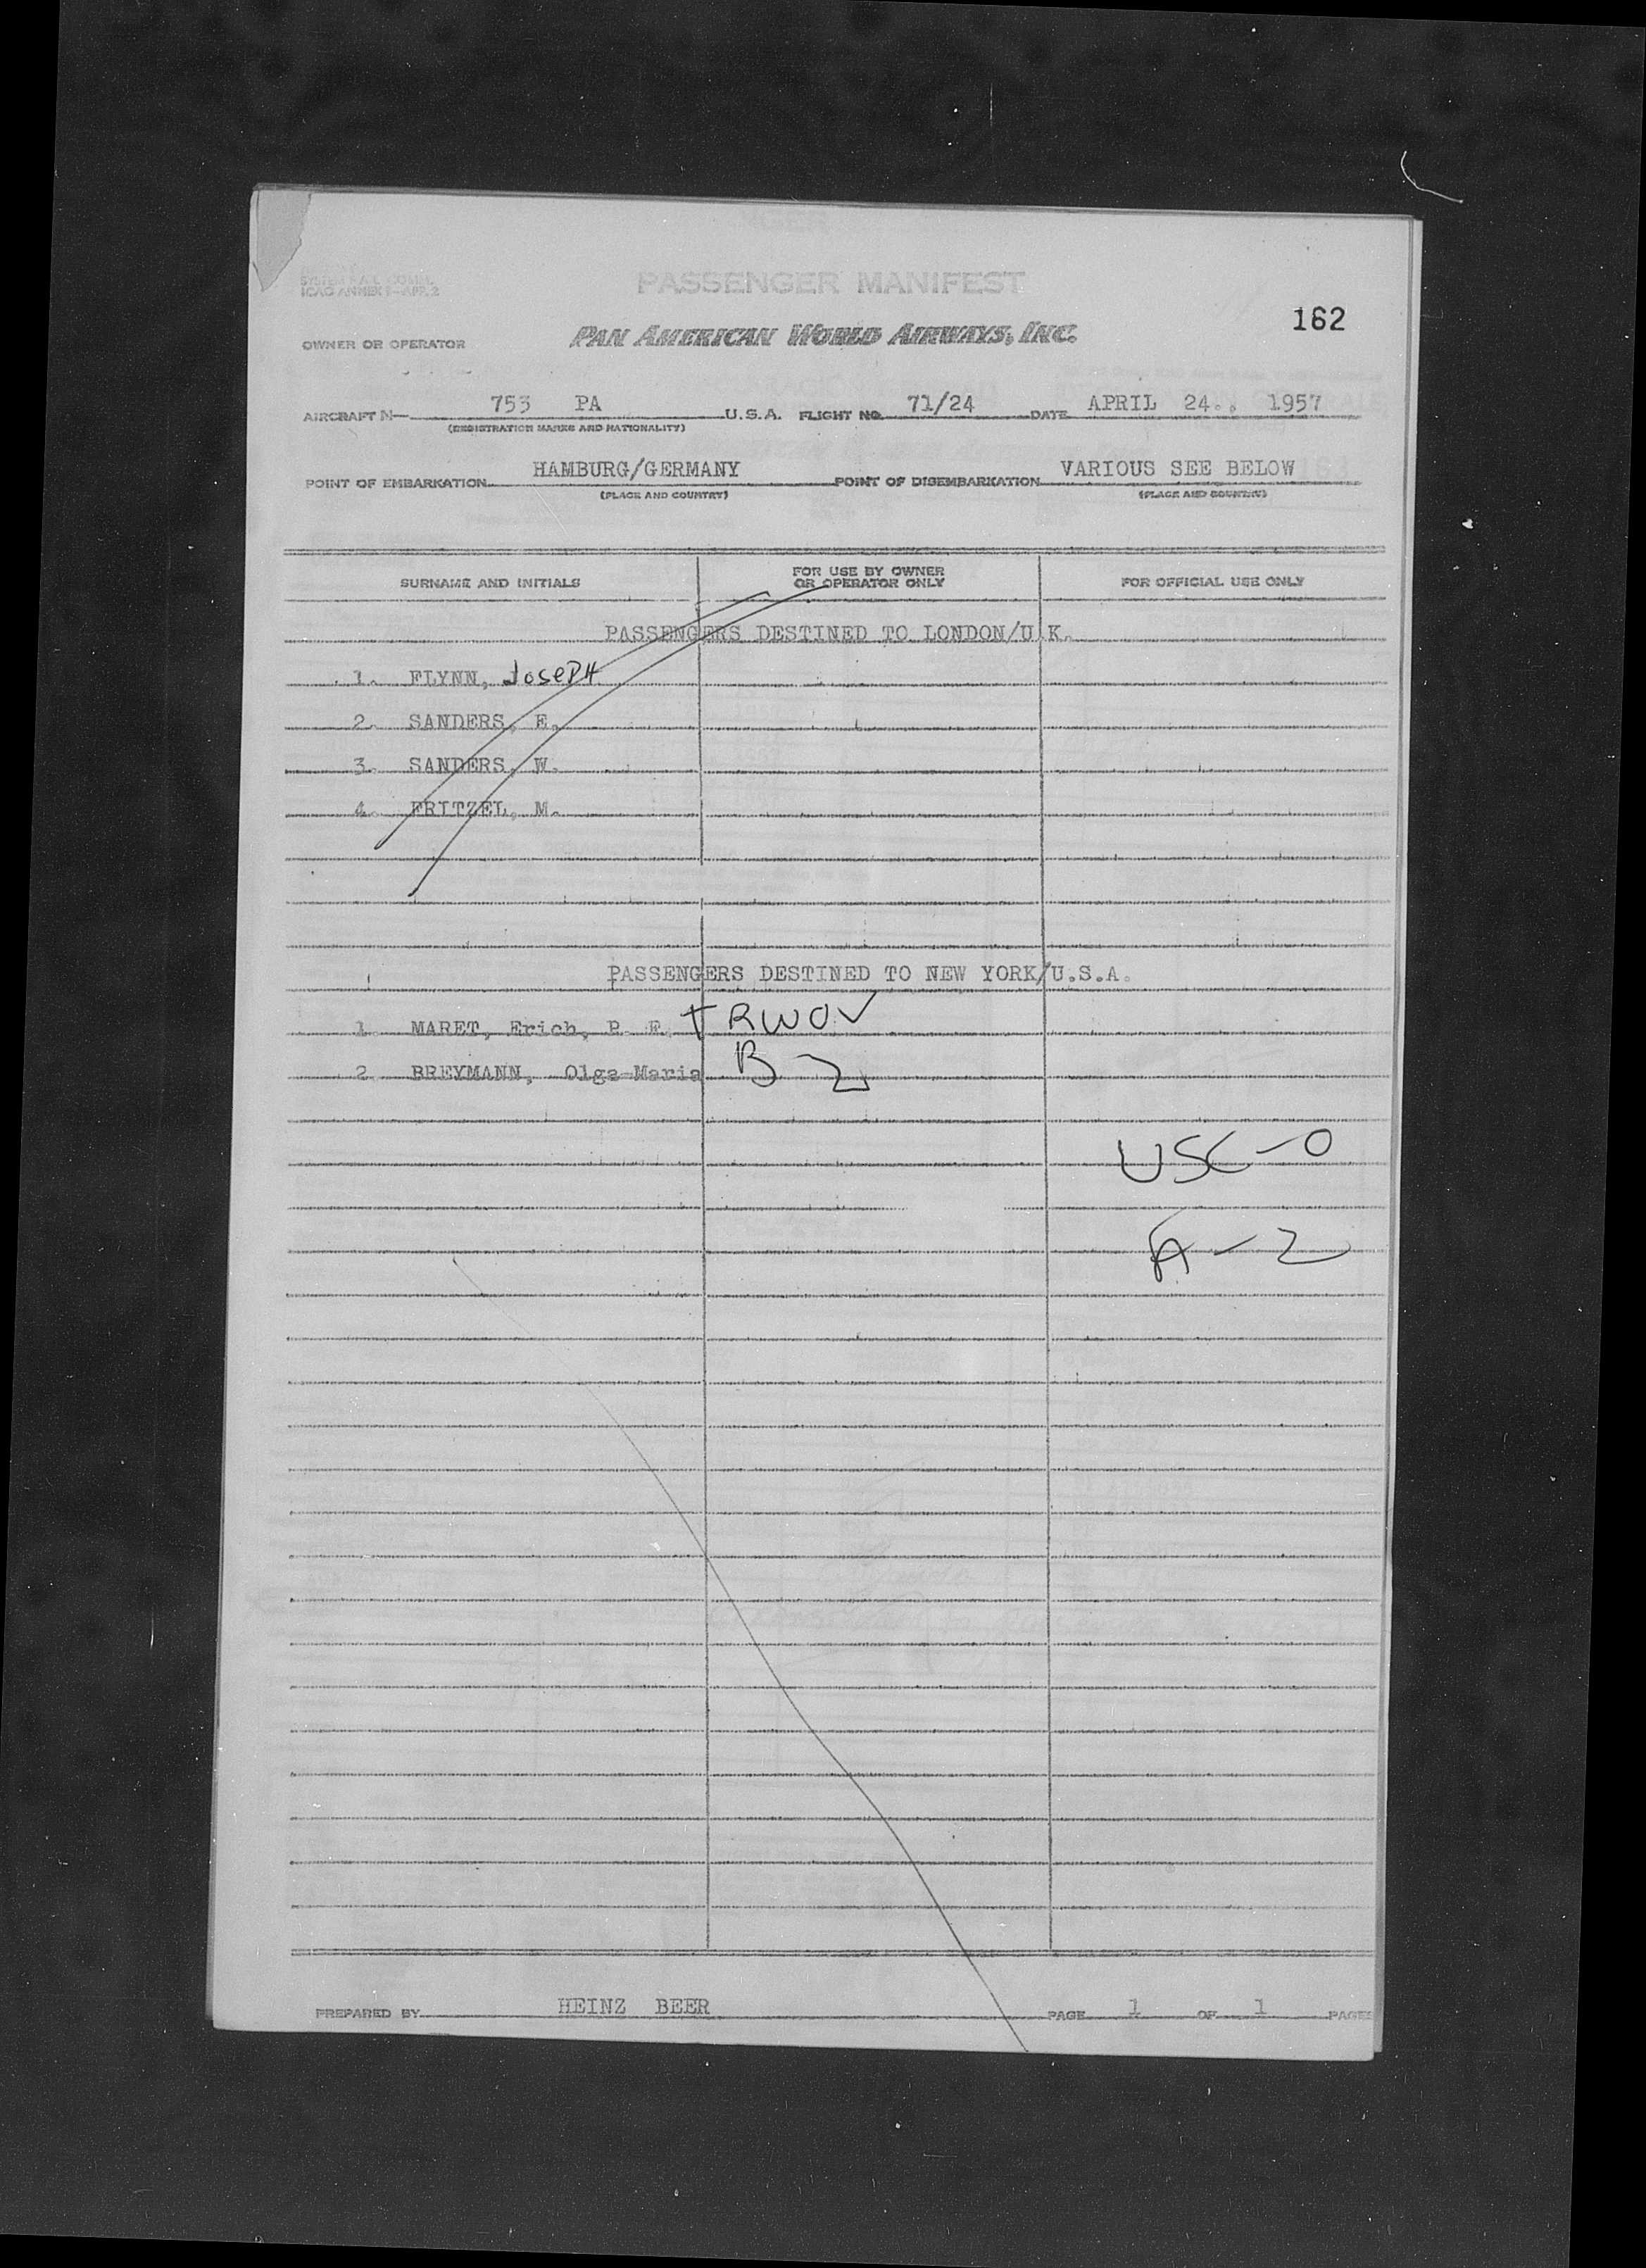 ICAO ANNEX 9-APP. 2
PASSENGER MANIFEST
162
OWNER OR OPERATOR PAN AMERICAN WORLD AIRWAYS, INC.
AIRCRAFT N— 753 PA U.S.A. FLIGHT NO. 71/24 DATE APRIL 24., 1957
(REGISTRATION MARKS AND NATIONALITY)
POINT OF EMBARKATION HAMBURG/GERMANY POINT OF DISEMBARKATION VARIOUS SEE BELOW
(PLACE AND COUNTRY) (PLACE AND COUNTRY)
SURNAME AND INITIALS FOR USE BY OWNER OR OPERATOR ONLY FOR OFFICIAL USE ONLY
PASSENGERS DESTINED TO LONDON/U.K.
1. FLYNN, JOSEPH
2. SANDERS, E.
3. SANDERS, W.
4. FRITZEL, M.
PASSENGERS DESTINED TO NEW YORK/U.S.A.
1. MARET, Erich, P. F. TRWOV
2. BREYMANN, Olga-Maria B 2
USC-0
A-2
PREPARED BY HEINZ BEER PAGE 1 OF 1 PAGES